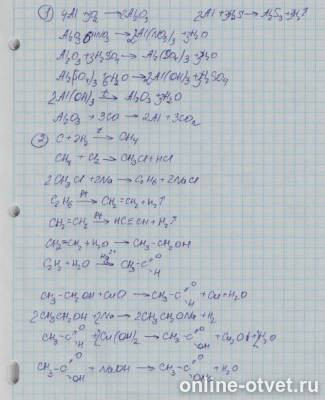 ① 4Al + 3O₂ → 2Al₂O₃ 2Al + 3H₂S → Al₂S₃ + 3H₂↑
Al₂O₃ + 6HNO₃ → 2Al(NO₃)₃ + 3H₂O
Al₂O₃ + 3H₂SO₄ → Al₂(SO₄)₃ + 3H₂O
Al₂(SO₄)₃ + 6H₂O → 2Al(OH)₃ + 3H₂SO₄
2Al(OH)₃ → Al₂O₃ + 3H₂O
Al₂O₃ + 3CO → 2Al + 3CO₂
② C + 2H₂ → CH₄
CH₄ + Cl₂ → CH₃Cl + HCl
2CH₃Cl + 2Na → C₂H₆ + 2NaCl
C₂H₆ →Pt CH₂=CH₂ + H₂↑
CH₂=CH₂ →Pt HC≡CH + H₂↑
CH₂=CH₂ + H₂O → CH₃-CH₂OH
C₂H₂ + H₂O →Hg²⁺ CH₃-C=O -H
CH₃-CH₂OH + CuO → CH₃-C=O -H + Cu + H₂O
2CH₃CH₂OH + 2Na → 2CH₃CH₂ONa + H₂
CH₃-C=O -H + 2Cu(OH)₂ → CH₃-C=O -OH + Cu₂O↓ + 2H₂O
CH₃-C=O -OH + NaOH → CH₃-C=O + H₂O
online-otvet.ru